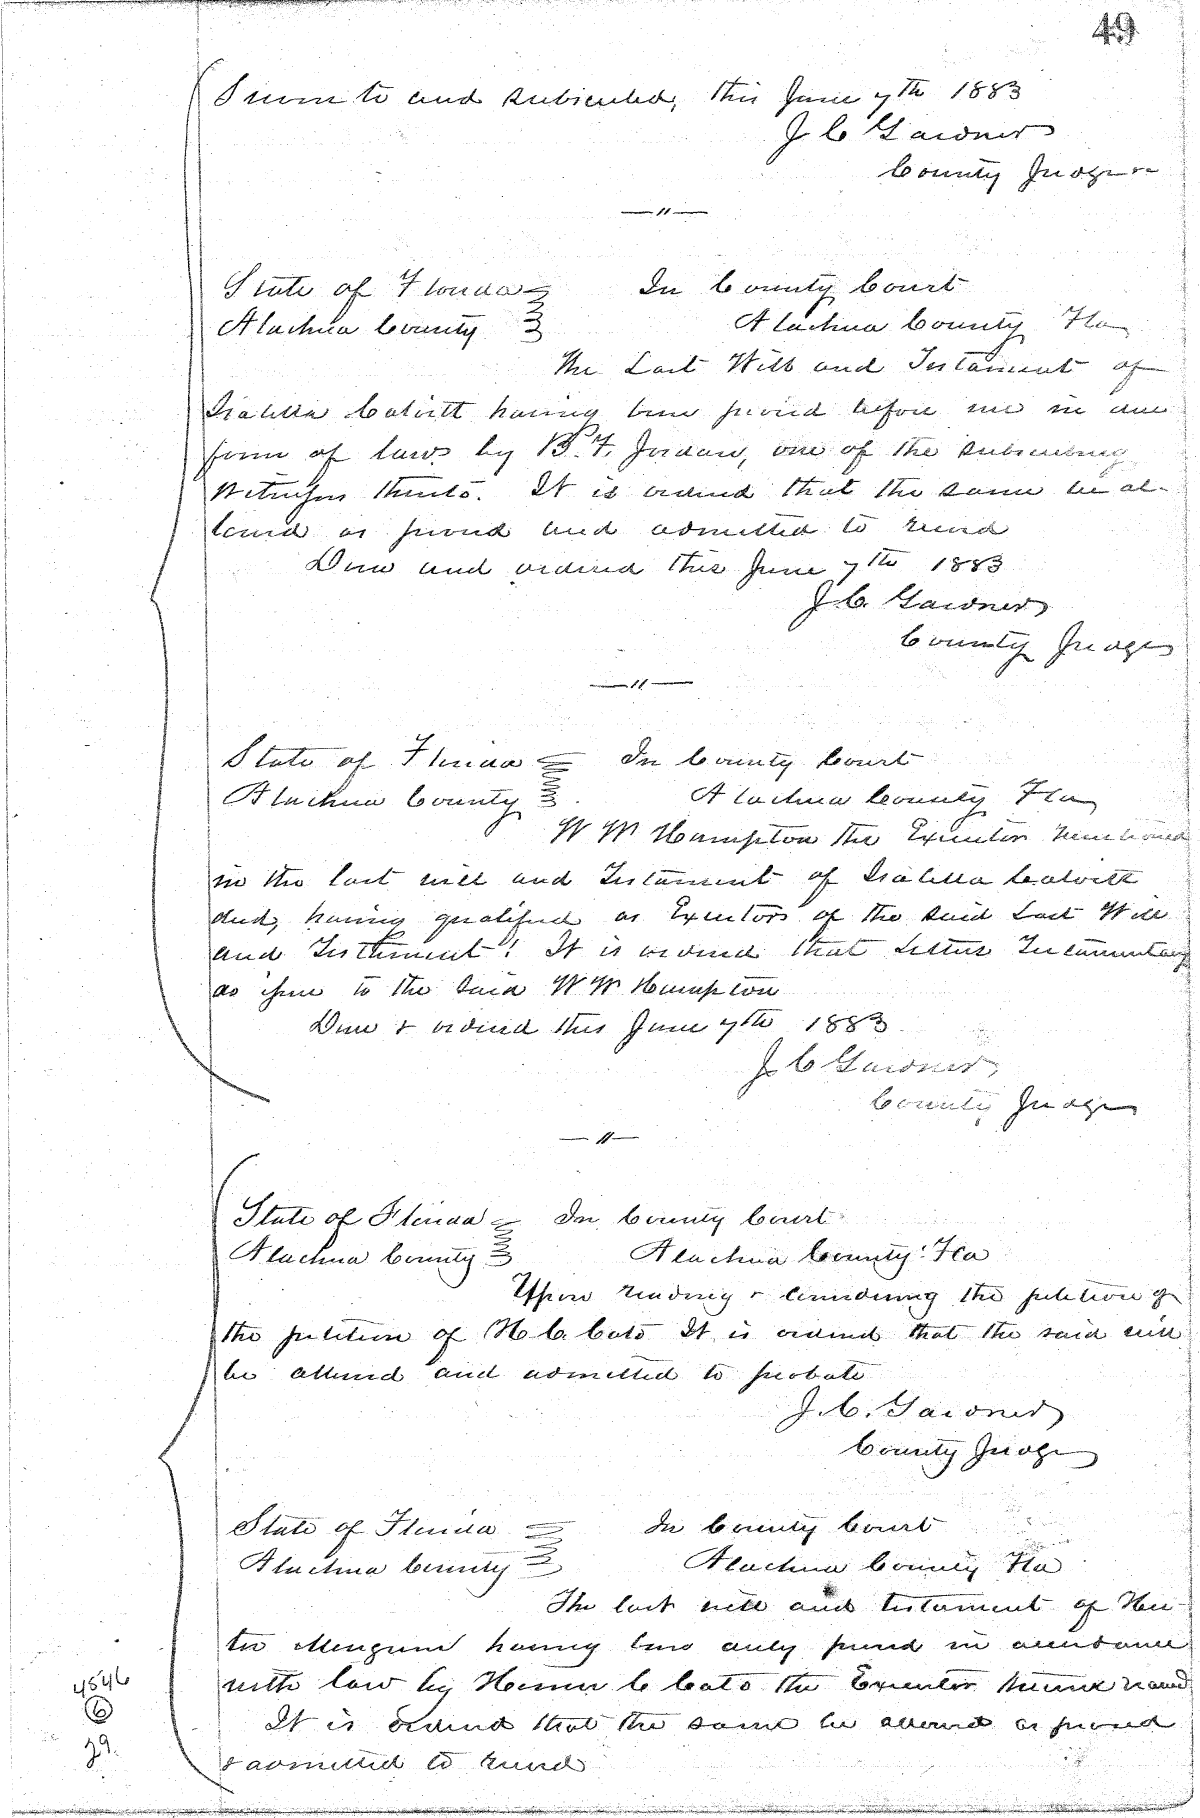 49
Sworn to and subscribed, this June 7th 1883
J C Gardner
County Judge
—"—
State of Florida In County Court
Alachua County Alachua County Fla
The Last Will and Testament of
Isabella Calvitt having been proved before me in due
form of law by B. F. Jordan, one of the subscribing
Witnesses thereto. It is ordered that the same be al-
lowed as proved and admitted to record
Done and ordered this June 7th 1883
J. C. Gardner
County Judge
—"—
State of Florida In County Court
Alachua County Alachua County Fla
W W Hampton the Executor mentioned
in the last will and Testament of Isabella Calvitt
decd, having qualified as Executor of the said Last Will
and Testament. It is ordered that Letters Testamentary
do issue to the said W W Hampton
Done & ordered this June 7th 1883
J C Gardner
County Judge
—"—
State of Florida In County Court
Alachua County Alachua County Fla
Upon reading & considering the petition of
the petition of H. C. Cato It is ordered that the said will
be allowed and admitted to probate
J. C. Gardner
County Judge
State of Florida In County Court
Alachua County Alachua County Fla
The last will and testament of
having been duly proved in accordance
with law by C Cato the Executor named
It is ordered that the same be allowed as proved
& admitted to record
4546
6
79.